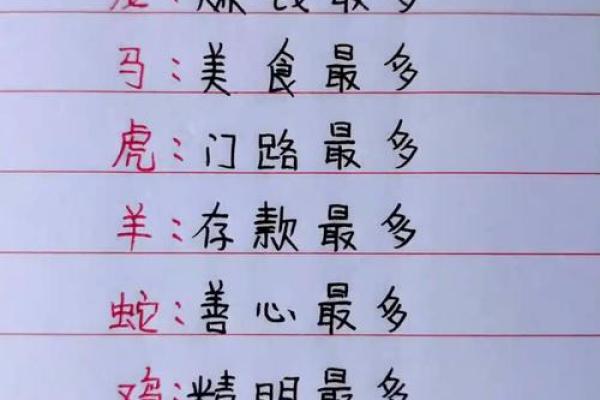 赚钱最多
马：美食最多
虎：门路最多
羊：存款最多
蛇：善心最多
鸡：精明最多